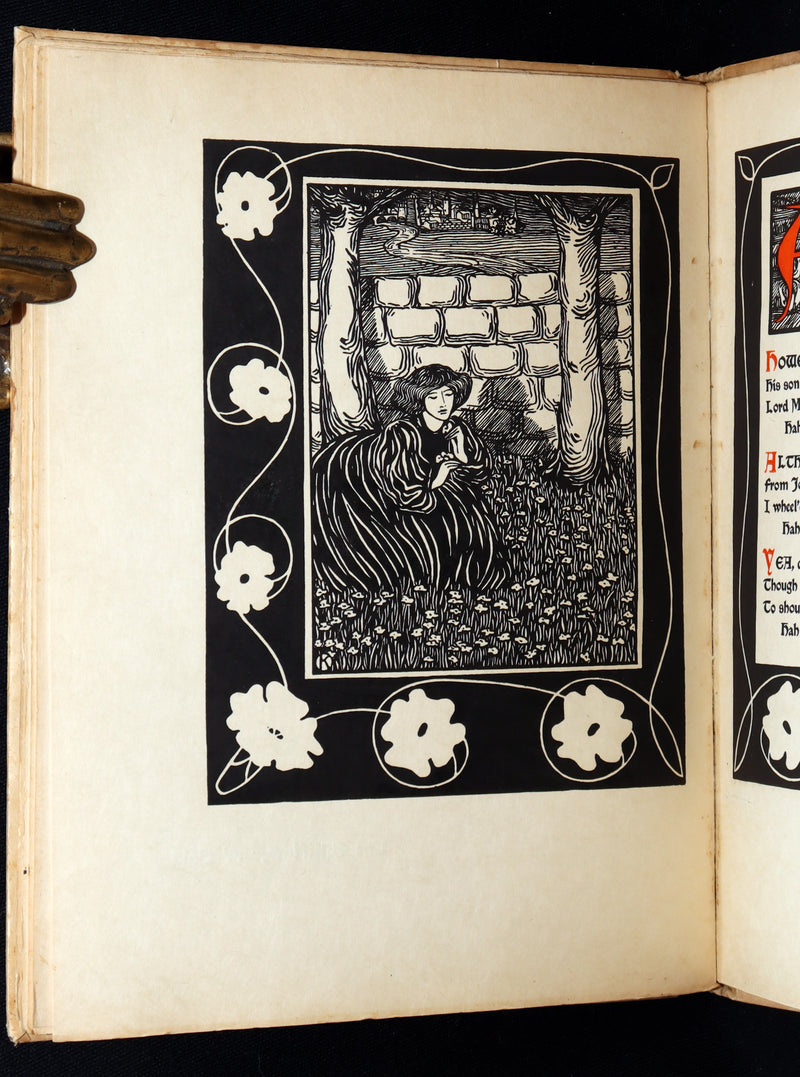 A
Howe
His son
Lord M
Hah
Alth
From Jo
I wheel'
Hah
Yea,
Though
To shou
Hah